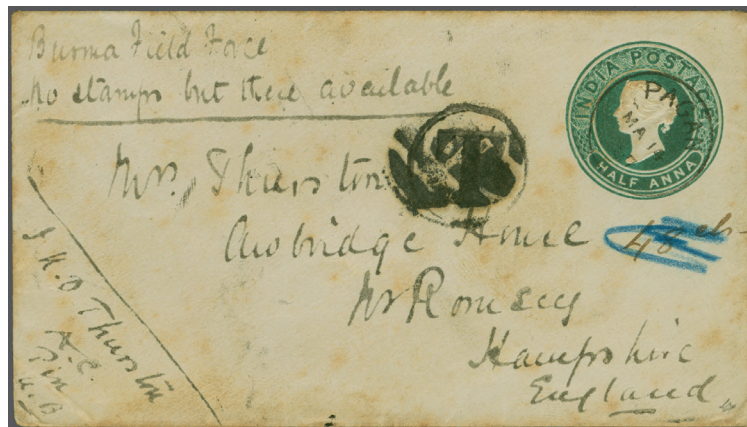 Burma Field Force
No stamps but these available
INDIA POSTAGE
HALF ANNA
PAGAN
MA
T
Mrs. Thurston
Awbridge House
48
Nr Romsey
Hampshire
England
Thurston